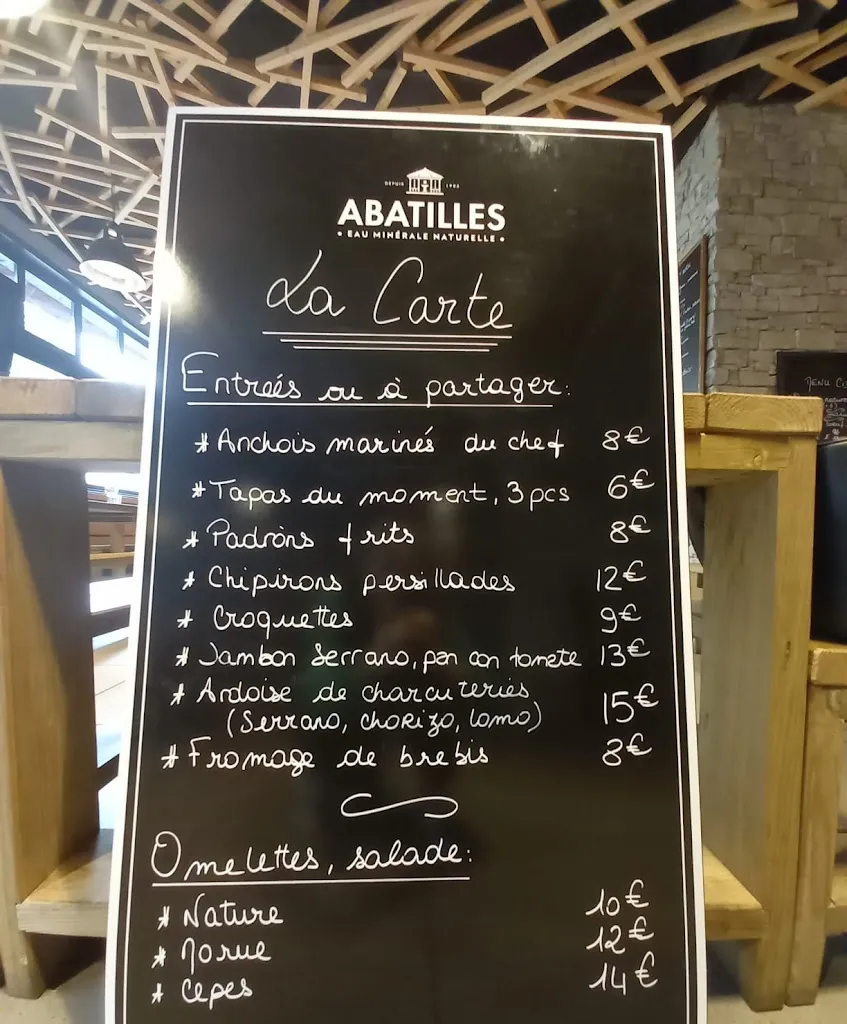 DEPUIS 1925
ABATILLES
• EAU MINÉRALE NATURELLE •
La Carte
Entreés ou à partager:
* Anchois marinés du chef 8€
* Tapas du moment, 3pcs 6€
* Padròns frits 8€
* Chipirons persillades 12€
* Croquettes 9€
* Jambon Serrano, pan con tomete 13€
* Ardoise de charcuteries
(Serrano, chorizo, lomo) 15€
* Fromage de brebis 8€
Omelettes, salade:
* Nature 10€
* Morue 12€
* Cepes 14€
MENU